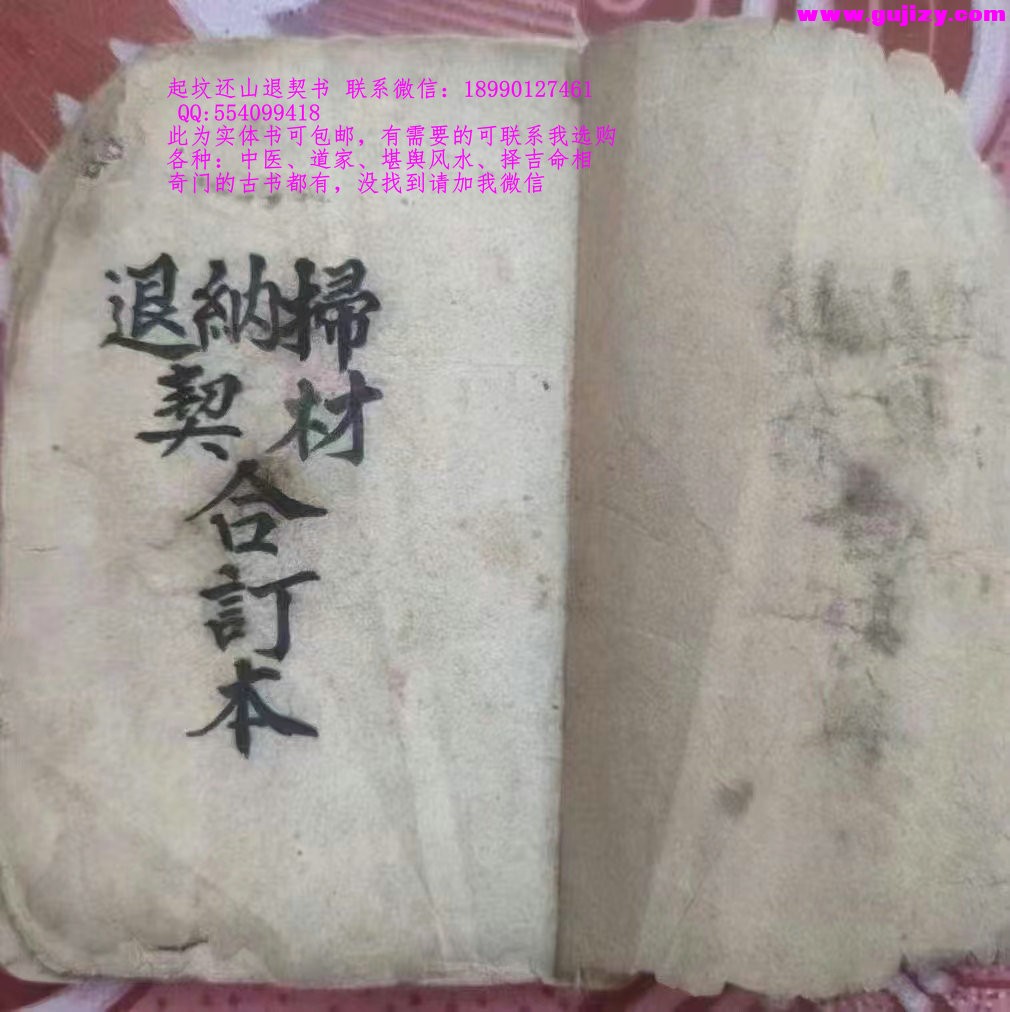 www.gujizy.com
起坟还山退契书 联系微信：18990127461
QQ:554099418
此为实体书可包邮，有需要的可联系我选购
各种：中医、道家、堪舆风水、择吉命相
奇门的古书都有，没找到请加我微信
掃材
納
退契
合訂本